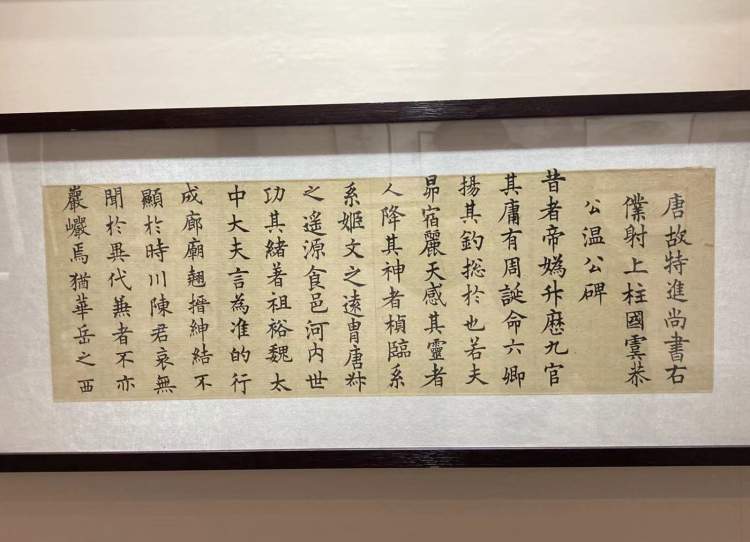 唐故特進尚書右
僕射上柱國虞恭
公温公碑
昔者帝媯升歷九官
其庸有周誕命六卿
揚其釣捴於也若夫
昴宿麗天感其靈者
人降其神者楨臨系
系姬文之遠胄唐叔
之遥源食邑河内世
功其緒著祖裕魏太
中大夫言為准的行
成廊廟翹搢紳結不
顯於時川陳君哀無
聞於異代兼者不亦
巖巘焉猶華岳之西